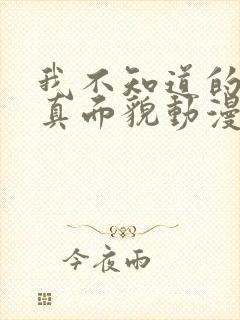 我不知道的
真而貌動漫
今夜雨